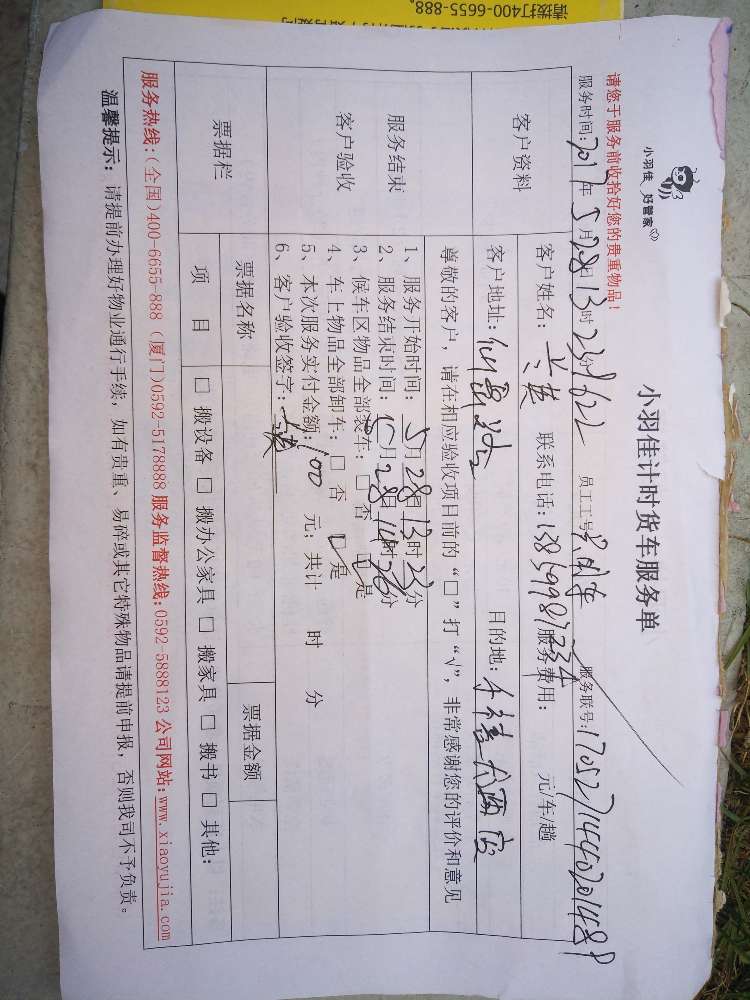 小羽佳 好管家
小羽佳计时货车服务单
请您于服务前收拾好您的贵重物品！
服务时间：2017年5月28日13时23分 1622 员工工号 服务联号：170527144020148
客户资料
客户姓名： 联系电话：13859987334 服务费用： 元/车/趟
客户地址： 目的地：
服务结束
客户验收
尊敬的客户，请在相应验收项目前的“□”打“√”，非常感谢您的评价和意见
1、服务开始时间：5月28日13时23分
2、服务结束时间：5月28日14时26分
3、候车区物品全部装车：□ 否 □ 是
4、车上物品全部卸车：□ 否 □ 是
5、本次服务实付金额：100 元；共计 时 分
6、客户验收签字：
票据栏
票据名称 票据金额
项 目 □ 搬设备 □ 搬办公家具 □ 搬家具 □ 搬书 □ 其他：
服务热线：(全国)400-6655-888 (厦门)0592-5178888 服务监督热线：0592-5888123 公司网站：www.xiaoyujia.com
温馨提示：请提前办理好物业通行手续，如有贵重、易碎或其它特殊物品请提前申报，否则我司不予负责。
请拨打400-6655-888。